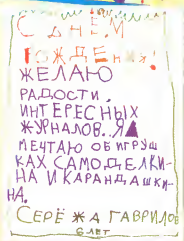 С ДНЁМ
РОЖДЕНИЯ!
ЖЕЛАЮ
РАДОСТИ,
ИНТЕРЕСНЫХ
ЖУРНАЛОВ..Я
МЕЧТАЮ ОБ ИГРУШ
КАХ САМОДЕЛКИ-
НА И КАРАНДАШКИ-
НА.
СЕРЁЖА ГАВРИЛОВ
6 ЛЕТ